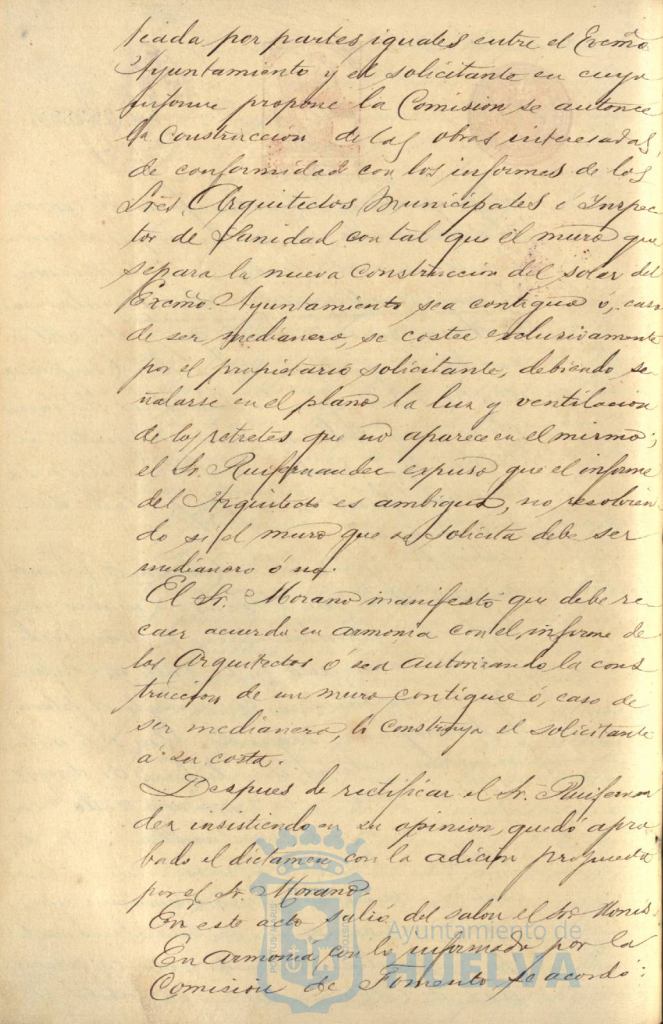 teada por partes iguales entre el Excmo
Ayuntamiento y el solicitante en cuyo
informe propone la Comision se autorice
la Construccion de las obras interesadas,
de conformidad con los informes de los
Sres. Arquitectos Municipales é Inspec
tor de Sanidad con tal que el muro que
separa la nueva Construccion del solar del
Excmo. Ayuntamiento sea contiguo ó, caso
de ser medianero, se costee exclusivamente
por el propietario solicitante, debiendo se
ñalarse en el plano la luz y ventilacion
de los retretes que no aparece en el mismo;
el Sr. Ruifernandez expuso que el informe
del Arquitecto es ambiguo, no resolvien
do si el muro que se solicita debe ser
medianero ó no.
El Sr. Morano manifestó que debe re
caer acuerdo en armonia con el informe de
los Arquitectos ó sea autorizando la cons
truccion de un muro contiguo ó, caso de
ser medianero, lo construya el solicitante
á su costa.
Despues de rectificar el Sr. Ruifernan
dez insistiendo en su opinion, quedó apro
bado el dictamen con la adición propuesta
por el Sr. Morano.
En este acto salió del salon el Sr. Monis
En armonia con lo informado por la
Comision de Fomento se acordó:
Ayuntamiento de
HUELVA